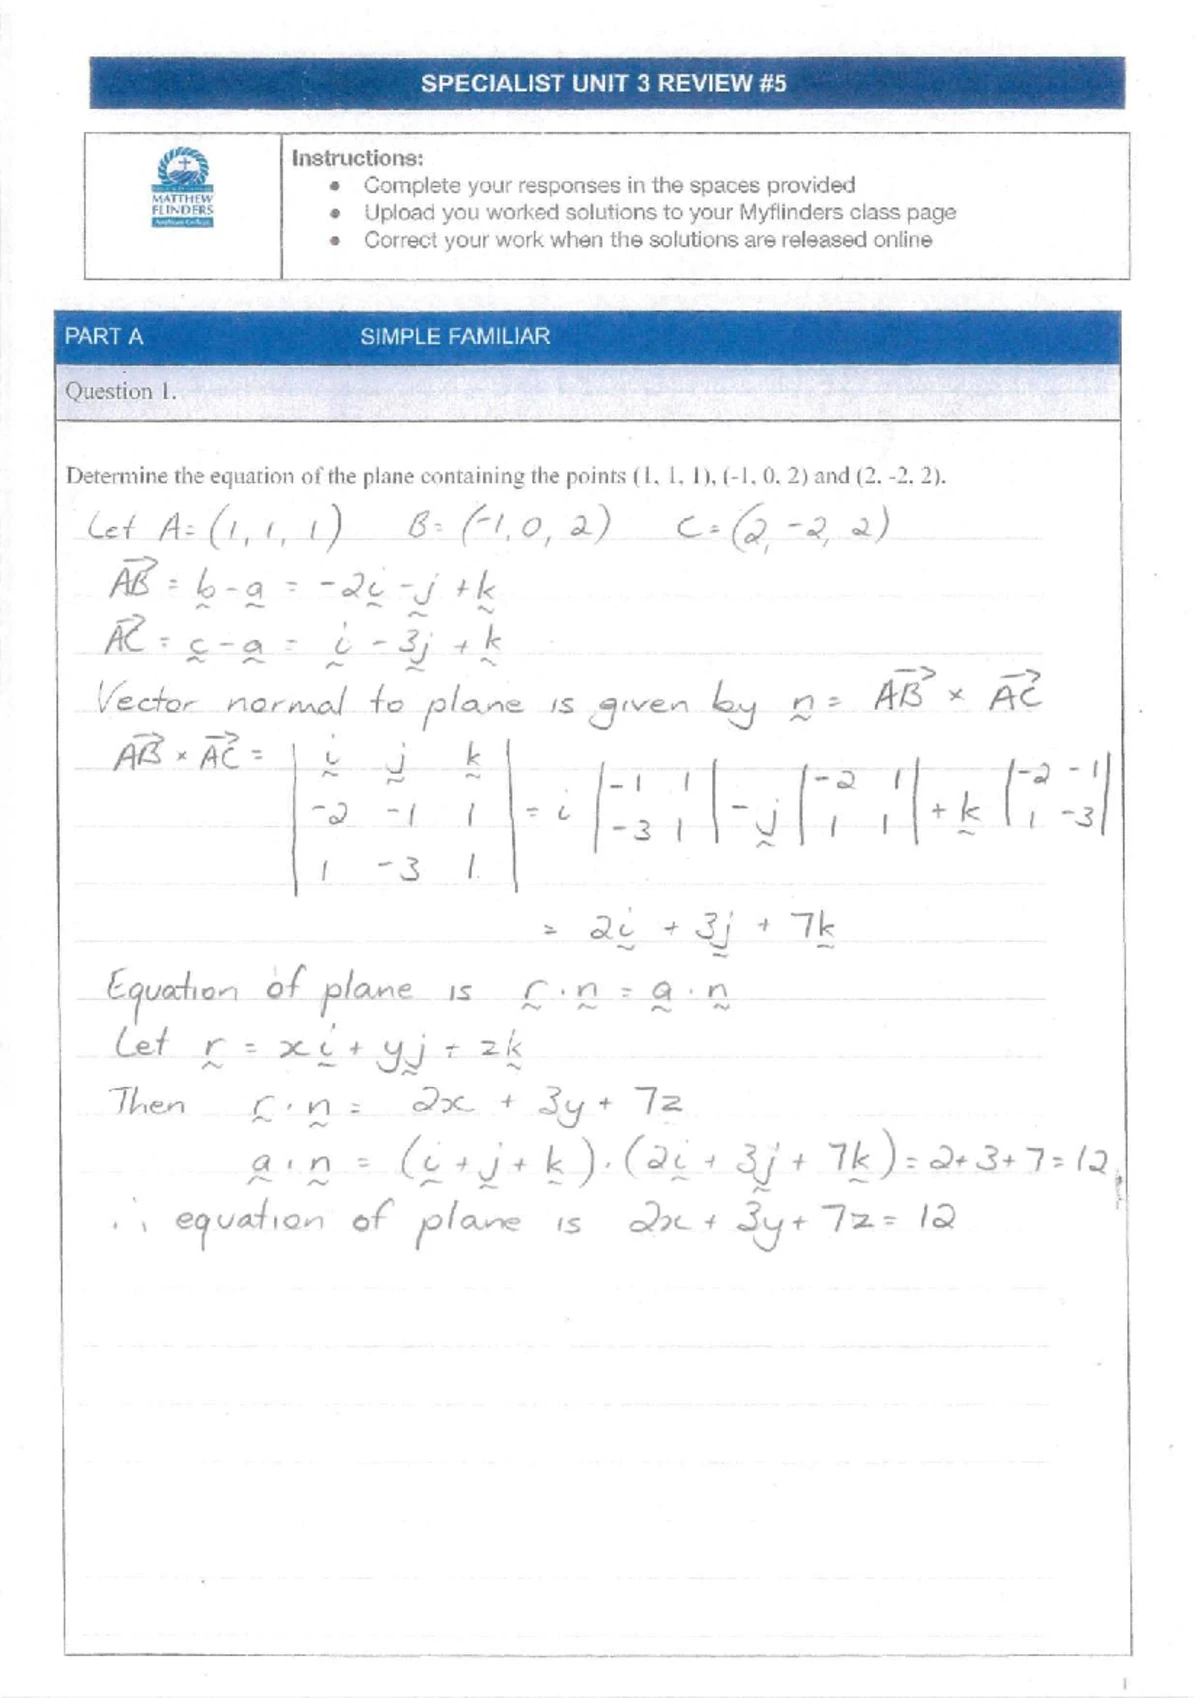 SPECIALIST UNIT 3 REVIEW #5
MATTHEW
FLINDERS
Anglican College
Instructions:
• Complete your responses in the spaces provided
• Upload you worked solutions to your Myflinders class page
• Correct your work when the solutions are released online
PART A SIMPLE FAMILIAR
Question 1.
Determine the equation of the plane containing the points (1, 1, 1), (-1, 0, 2) and (2, -2, 2).
Let A = (1, 1, 1) B = (-1, 0, 2) C = (2, -2, 2)
AB = b - a = -2i - j + k
AC = c - a = i - 3j + k
Vector normal to plane is given by n = AB × AC
AB × AC = | i j k | = i | -1 1 | - j | -2 1 | + k | -2 -1 |
| -2 -1 1 | | -3 1 | | 1 1 | | 1 -3 |
| 1 -3 1 |
= 2i + 3j + 7k
Equation of plane is r · n = a · n
Let r = xi + yj + zk
Then r · n = 2x + 3y + 7z
a · n = (i + j + k) · (2i + 3j + 7k) = 2+3+7 = 12
∴ equation of plane is 2x + 3y + 7z = 12
1